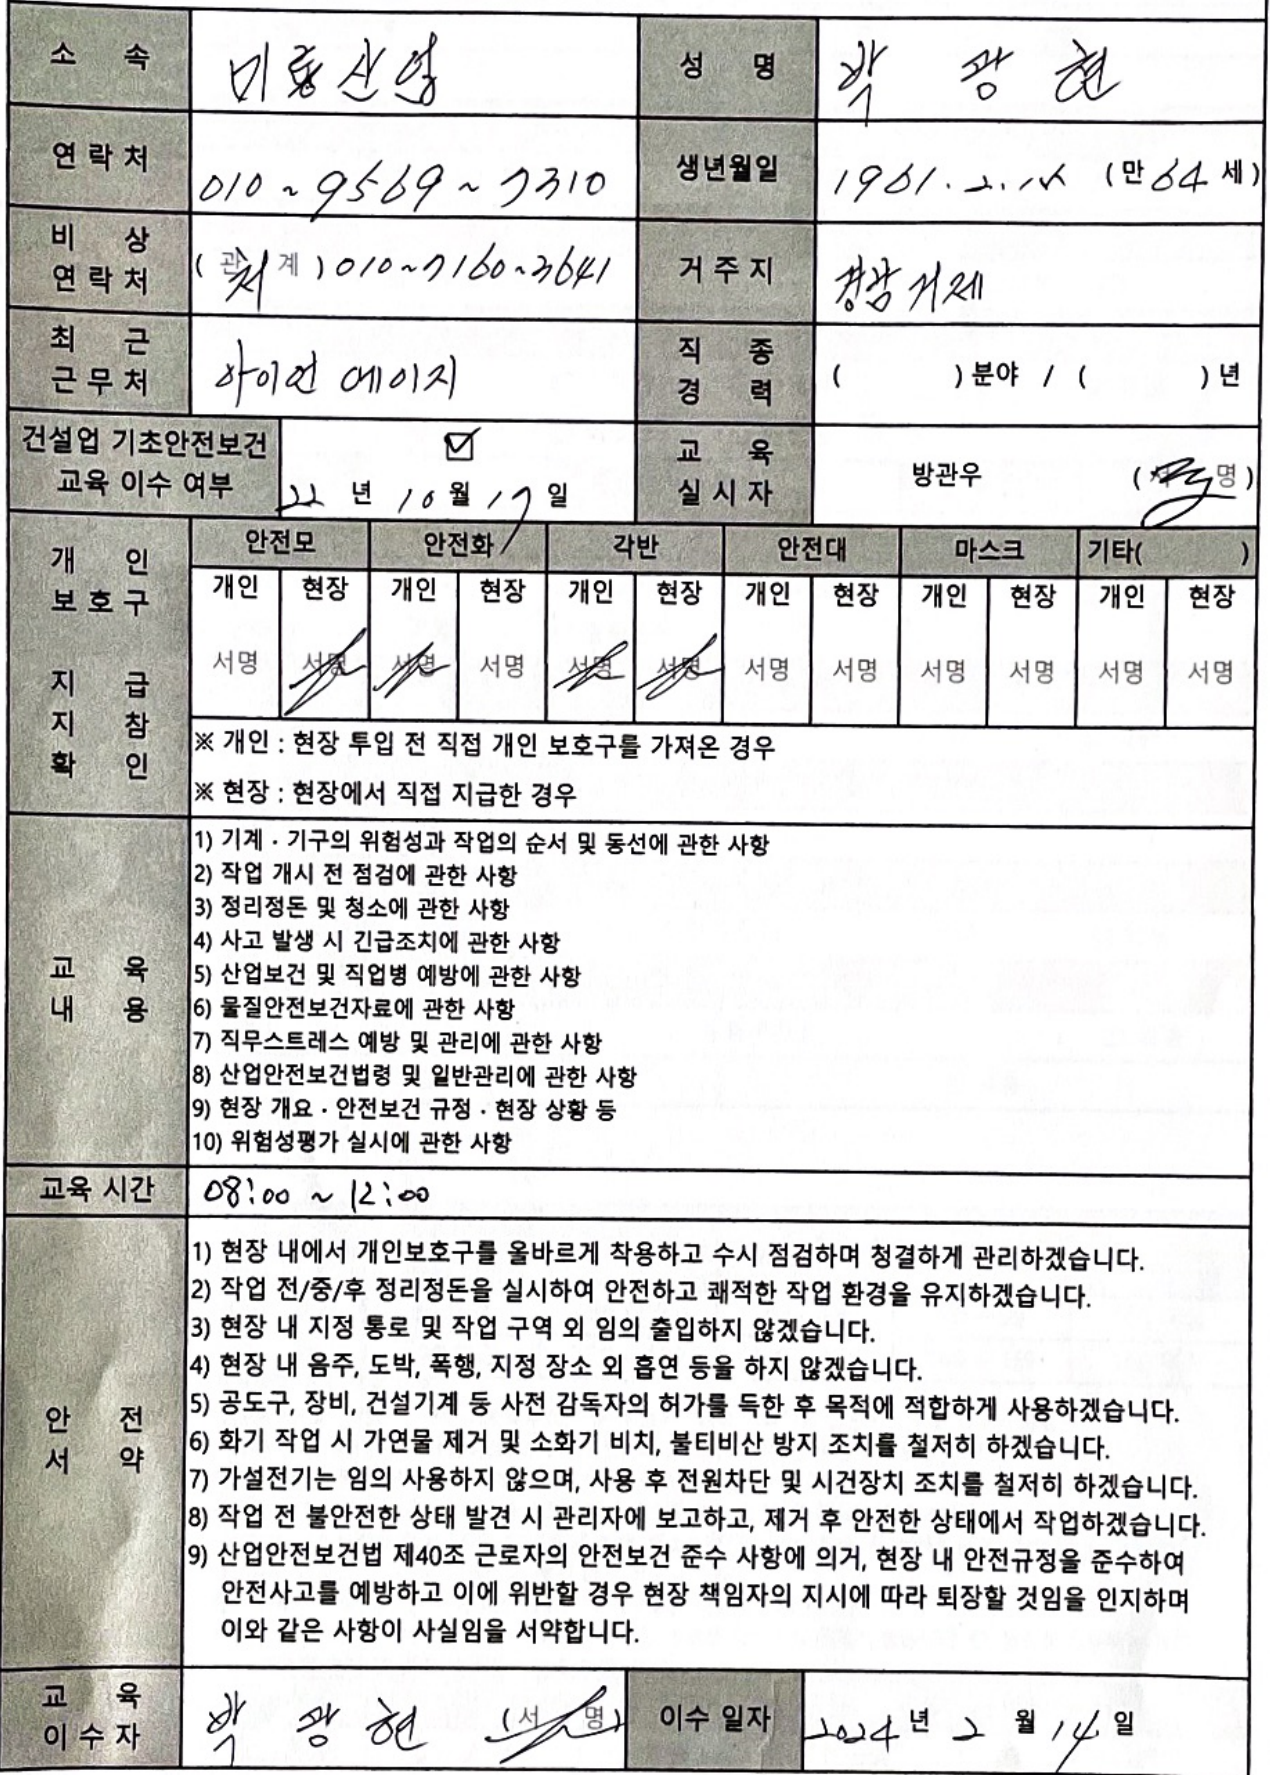 소 속 미룡산업 성 명 박 광 현
연 락 처 010 ~ 9569 ~ 7310 생년월일 1961. 2. (만 64 세)
비 상 연 락 처 (관 계) 처 010~7160~3641 거 주 지 경남 거제
최 근 근 무 처 아이언 에이지 직 종 경 력 ( ) 분야 / ( ) 년
건설업 기초안전보건
교육 이수 여부 22 년 10 월 17 일 교 육 실 시 자 방관우 (서 명)
개 인 보 호 구 지 급 지 참 확 인
안전모 안전화 각반 안전대 마스크 기타( )
개인 현장 개인 현장 개인 현장 개인 현장 개인 현장 개인 현장
서명 서명 서명 서명 서명 서명 서명 서명 서명 서명 서명 서명
※ 개인 : 현장 투입 전 직접 개인 보호구를 가져온 경우
※ 현장 : 현장에서 직접 지급한 경우
교 육 내 용
1) 기계 · 기구의 위험성과 작업의 순서 및 동선에 관한 사항
2) 작업 개시 전 점검에 관한 사항
3) 정리정돈 및 청소에 관한 사항
4) 사고 발생 시 긴급조치에 관한 사항
5) 산업보건 및 직업병 예방에 관한 사항
6) 물질안전보건자료에 관한 사항
7) 직무스트레스 예방 및 관리에 관한 사항
8) 산업안전보건법령 및 일반관리에 관한 사항
9) 현장 개요 · 안전보건 규정 · 현장 상황 등
10) 위험성평가 실시에 관한 사항
교육 시간 08:00 ~ 12:00
안 전 서 약
1) 현장 내에서 개인보호구를 올바르게 착용하고 수시 점검하며 청결하게 관리하겠습니다.
2) 작업 전/중/후 정리정돈을 실시하여 안전하고 쾌적한 작업 환경을 유지하겠습니다.
3) 현장 내 지정 통로 및 작업 구역 외 임의 출입하지 않겠습니다.
4) 현장 내 음주, 도박, 폭행, 지정 장소 외 흡연 등을 하지 않겠습니다.
5) 공도구, 장비, 건설기계 등 사전 감독자의 허가를 득한 후 목적에 적합하게 사용하겠습니다.
6) 화기 작업 시 가연물 제거 및 소화기 비치, 불티비산 방지 조치를 철저히 하겠습니다.
7) 가설전기는 임의 사용하지 않으며, 사용 후 전원차단 및 시건장치 조치를 철저히 하겠습니다.
8) 작업 전 불안전한 상태 발견 시 관리자에 보고하고, 제거 후 안전한 상태에서 작업하겠습니다.
9) 산업안전보건법 제40조 근로자의 안전보건 준수 사항에 의거, 현장 내 안전규정을 준수하여
안전사고를 예방하고 이에 위반할 경우 현장 책임자의 지시에 따라 퇴장할 것임을 인지하며
이와 같은 사항이 사실임을 서약합니다.
교 육 이 수 자 박 광 현 (서 명) 이수 일자 2024 년 2 월 14 일